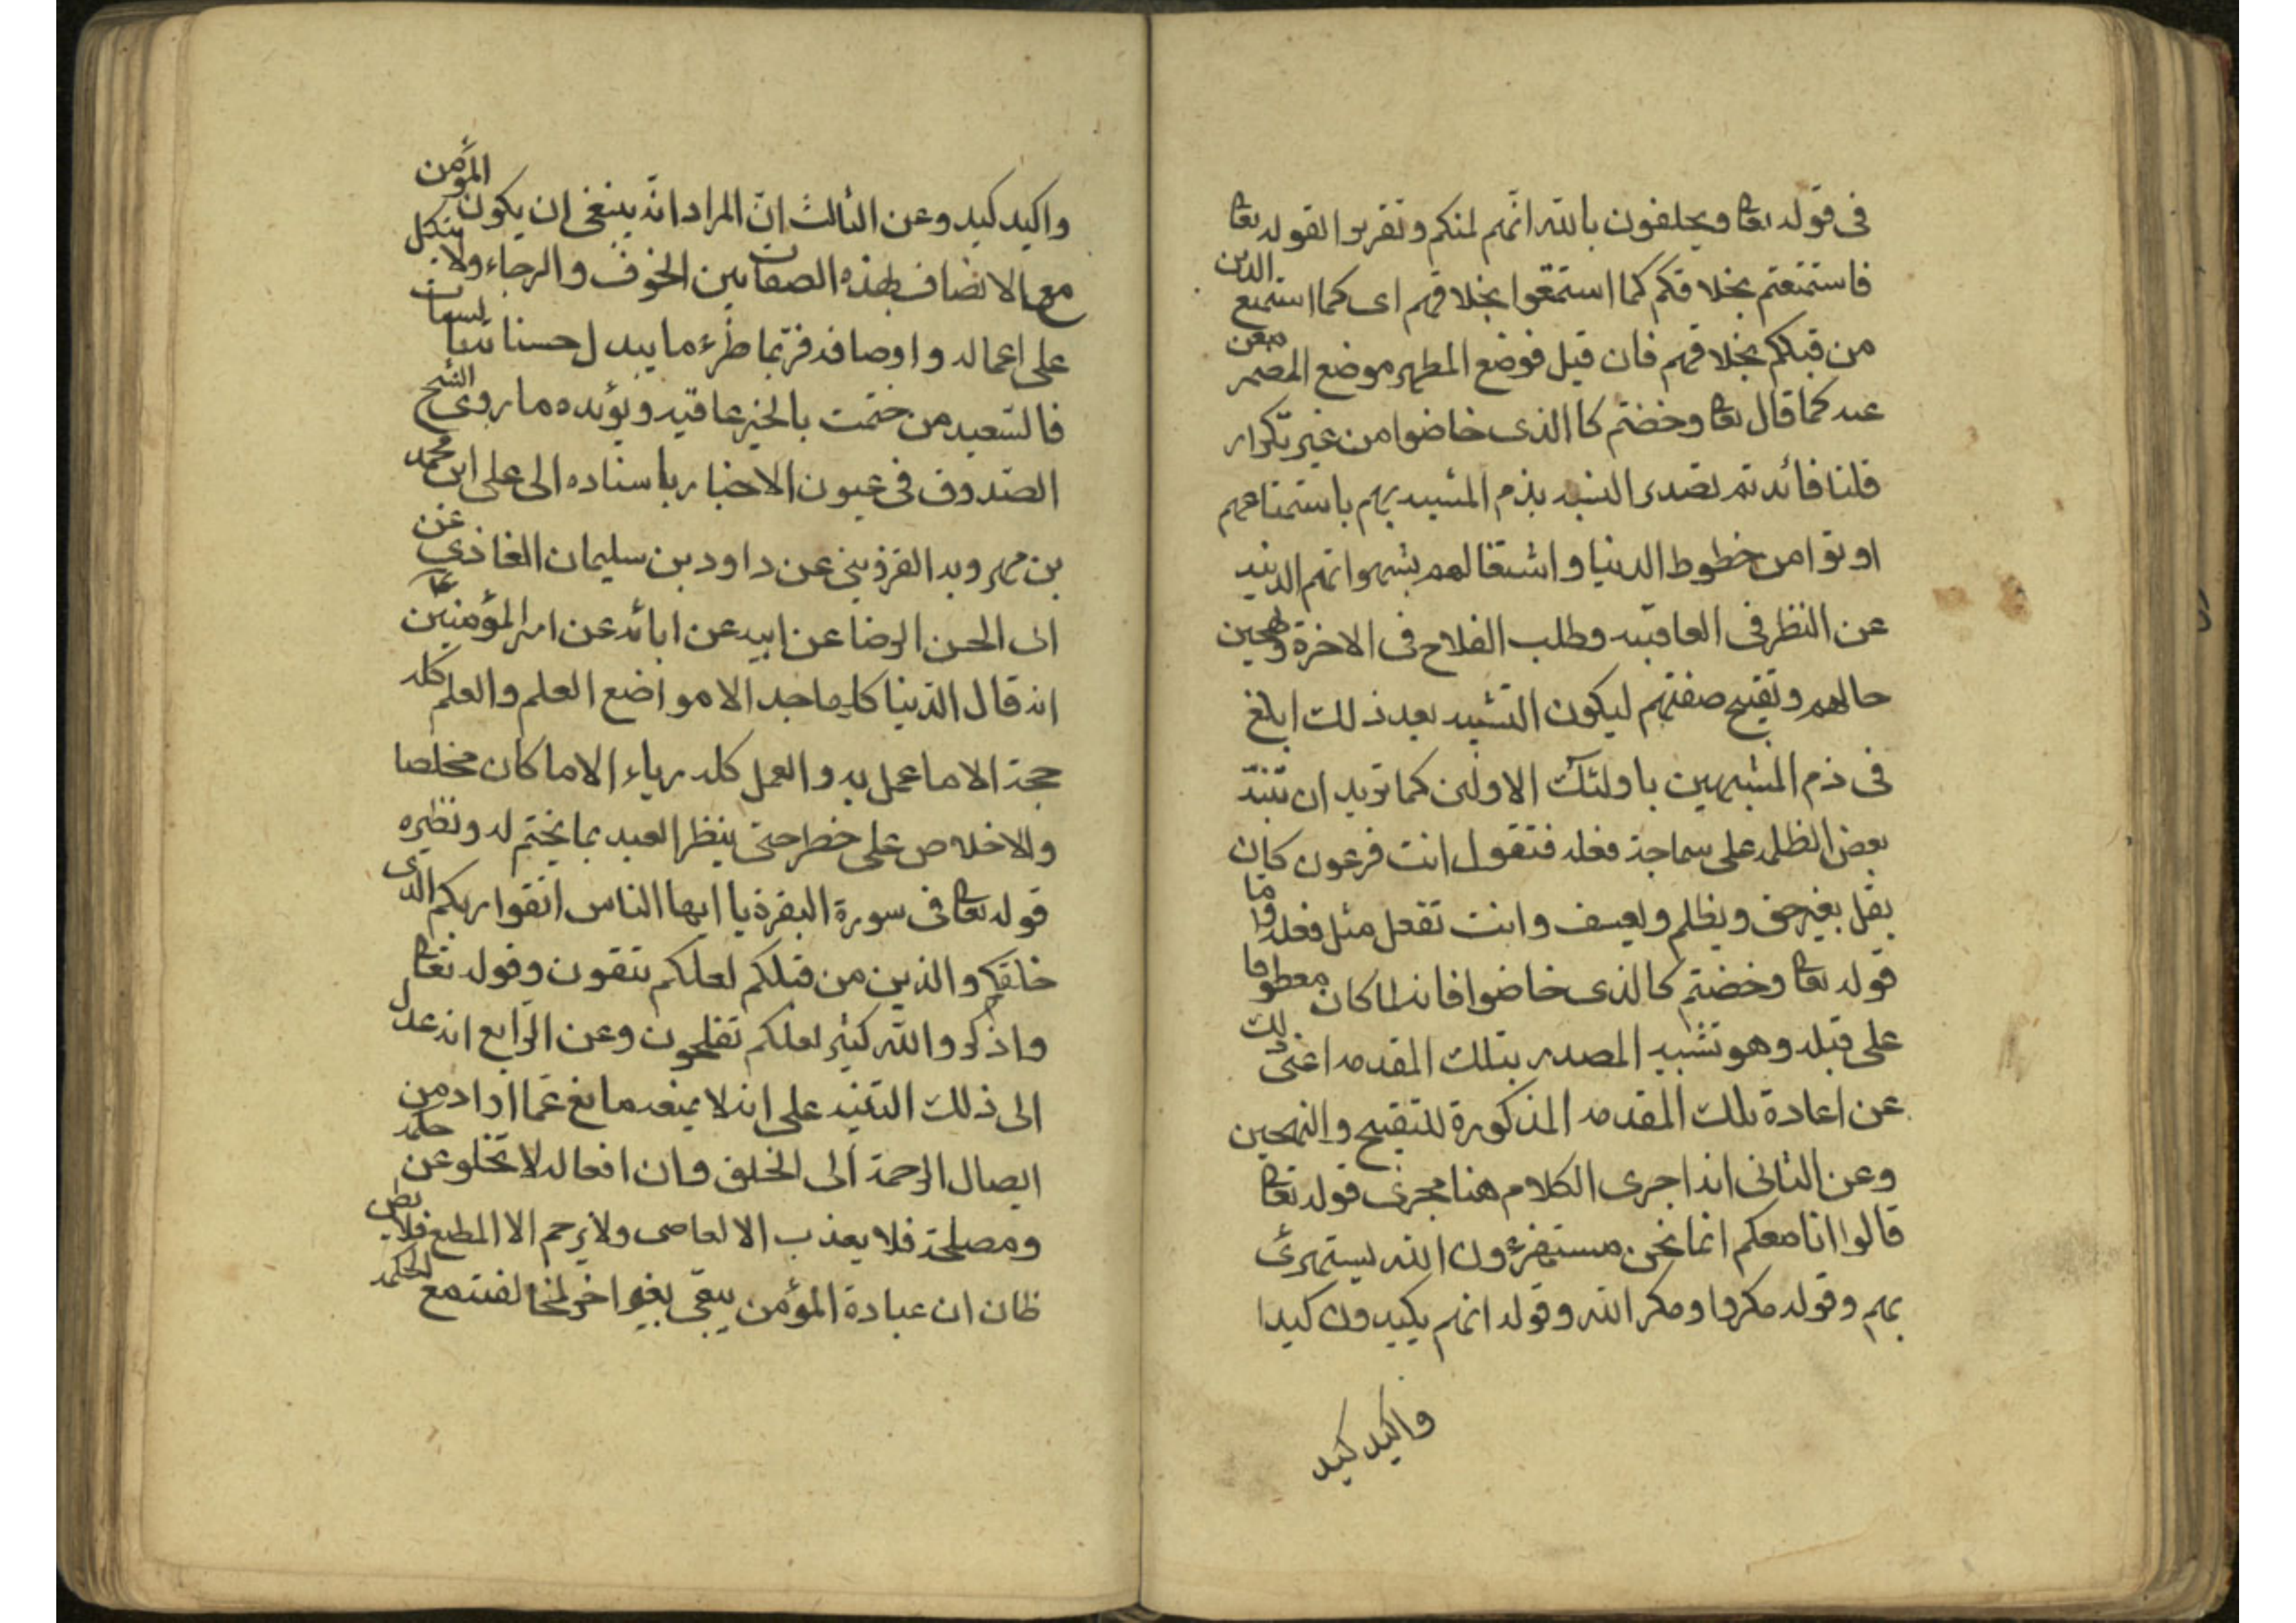 فى قوله تعا ويحلفون بالله انهم لمنكم وتقريرا لقوله تعا
فاستمتعتم بخلاقكم كما استمتعوا بخلاقهم اى كما استمتع الذين
من قبلكم بخلاقهم فان قيل فوضع المظهر موضع المضمر
عنه كما قال تعا وخضتم كا الذى خاضوا من غير تكرار
قلنا فائدته بذم المشبه بهم باستمتاعهم
اوتوا من حظوظ الدنيا واشتغالهم بشهواتهم الدنيه
عن النظر فى العاقبه وطلب الفلاح فى الاخرة وتهجين
حالهم وتقبيح صفتهم ليكون التشبيه بعد ذلك ابلغ
فى ذم المشبهين باولئك الاولين كما تريد ان تنبّه
بعض الظلمه على سماجة فعله فتقول انت فرعون كان
يقتل بغير حق ويظلم ويعسف وانت تفعل مثل فعله واما
قوله تعا وخضتم كالذى خاضوا فانه لما كان معطوفا
على قبله وهو تشبيه المصدر بتلك المقدمه اغنى ذلك
عن اعادة تلك المقدمه المذكورة للتقبيح والتهجين
وعن الثانى انه اجرى الكلام هنا مجرى قوله تعا
قالوا انا معكم انما نحن مستهزءون الله يستهزئ
بهم وقوله مكروا ومكر الله وقوله انهم يكيدون كيدا
واكيد كيد
واكيد كيد وعن الثالث انّ المراد انّه ينبغى ان يكون المؤمن
مع الاتصاف بهذه الصفات بين الخوف والرجاء ولا يتكل
على اعماله واوصافه فربّما طرء ما يبدل حسناته سيئات
فالسّعيد من ختمت بالخير عاقبته ويؤيده ما روى الشيخ
الصّدوق فى عيون الاخبار باسناده الى على ابن محمد
بن مهرويه القزوينى عن داود بن سليمان الغازى عن
ابى الحسن الرضا عن ابيه عن ابائه عن امير المؤمنين ع
انه قال الدّنيا كلها جهل الا مواضع العلم والعلم كله
حجة الا ما عمل به والعمل كله رياء الا ما كان مخلصا
والاخلاص على خطر حتى ينظر العبد بما يختم له ونظيره
قوله تعا فى سورة البقرة يا ايها الناس اتقوا ربكم الذى
خلقكم والذين من قبلكم لعلكم تتقون وقوله تعا
واذكروا الله كثيرا لعلكم تفلحون وعن الرّابع انه عدل
الى ذلك التنبيه على انه لا يمنعه مانع عمّا اراد من
ايصال الرحمة الى الخلق وان افعاله لا تخلو عن حكمه
ومصلحة فلا يعذب الا لعاصى ولا يرحم الا المطيع فلا يظن
ظان ان عبادة المؤمن يبقى بغير اخر لمخالفته مع الحكمه